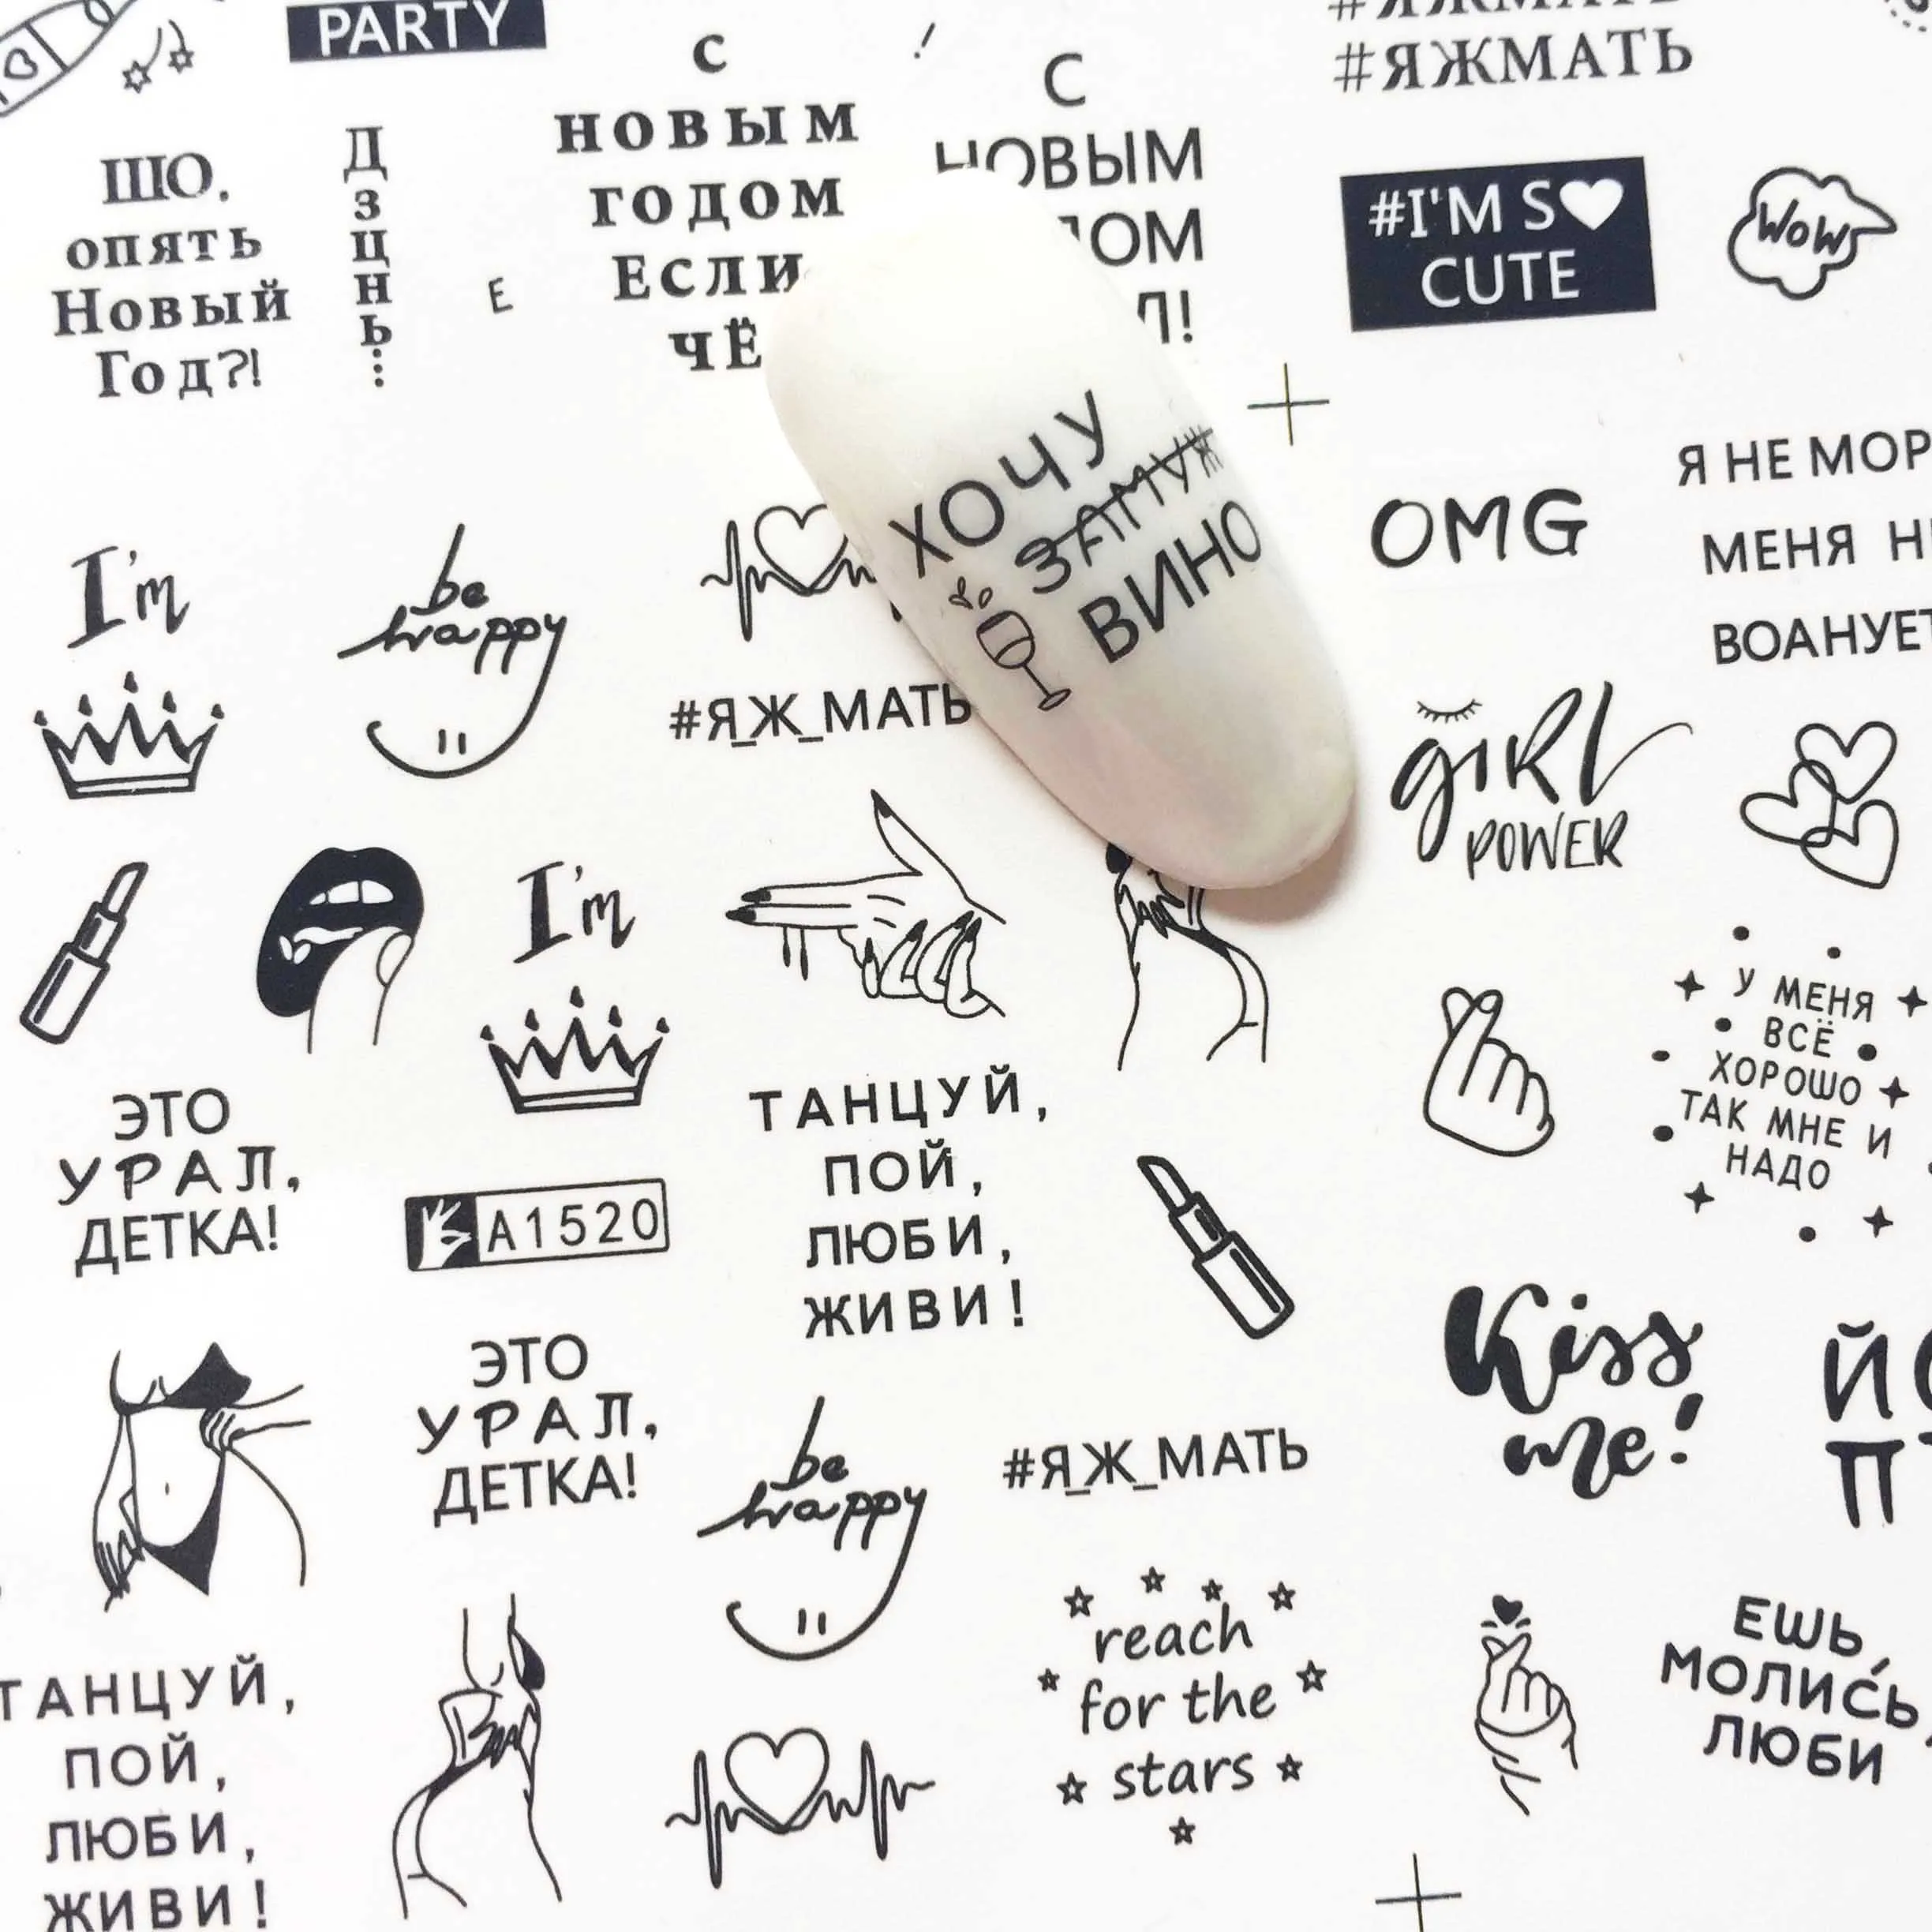 PARTY
#ЯЖМАТЬ
ШО.
опять
Новый
Год?!
Дзцнь...
Е
С
НОВЫМ
ГОДОМ
ЕСЛИ
ЧЁ
С
НОВЫМ
!
#I'M S
CUTE
WOW
ХОЧУ
ЗАМУЖ
ВИНО
OMG
Я НЕ
МЕНЯ
I'm
be
happy
#Я_Ж_МАТЬ
giRL
POWER
I'm
У МЕНЯ
ВСЁ
ХОРОШО
ТАК МНЕ И
НАДО
ЭТО
УРАЛ,
ДЕТКА!
A1520
ТАНЦУЙ,
ПОЙ,
ЛЮБИ,
ЖИВИ!
Kiss
me!
ЭТО
УРАЛ,
ДЕТКА!
be
happy
#Я_Ж_МАТЬ
reach
for the
stars
ЕШЬ,
МОЛИСЬ,
ЛЮБИ
ТАНЦУЙ,
ПОЙ,
ЛЮБИ,
ЖИВИ!